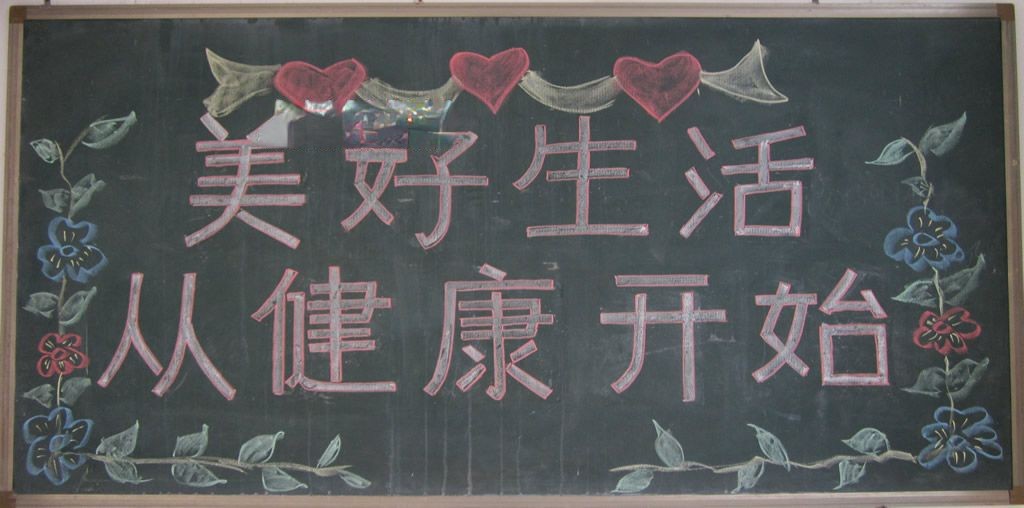 美好生活
从健康开始